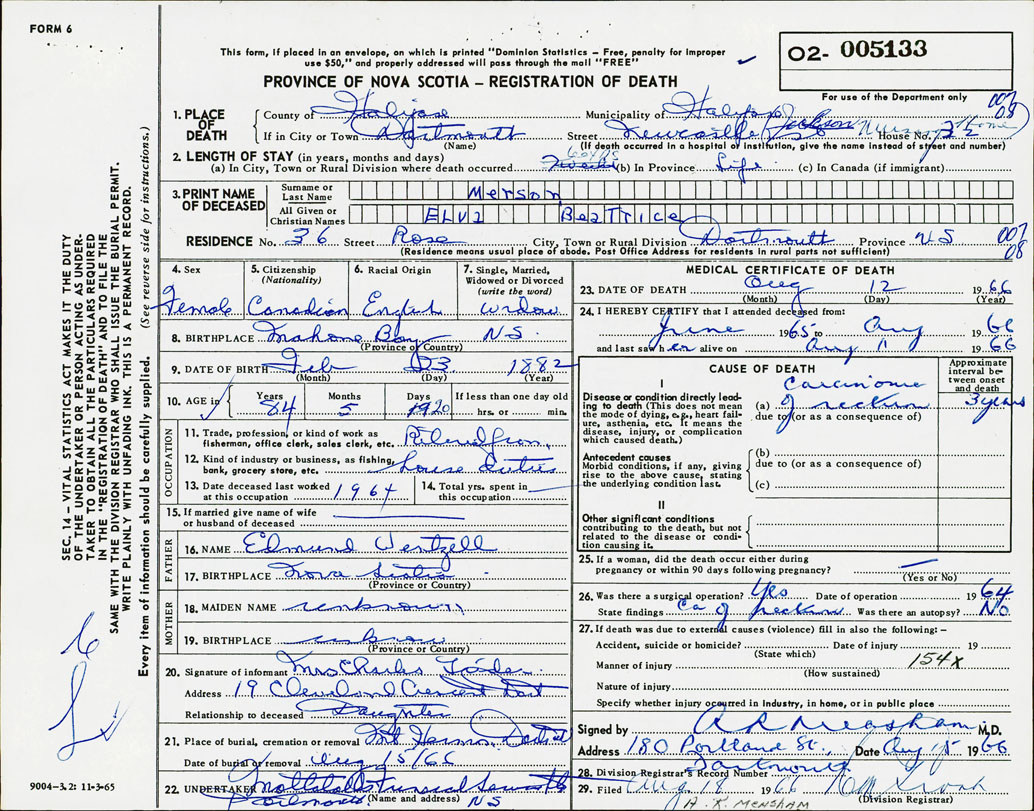 FORM 6
This form, if placed in an envelope, on which is printed "Dominion Statistics – Free, penalty for improper
use $50," and properly addressed will pass through the mail "FREE"
02- 005133
PROVINCE OF NOVA SCOTIA – REGISTRATION OF DEATH
For use of the Department only
1. PLACE OF DEATH
County of Halifax Municipality of Halifax
007
08
If in City or Town Dartmouth Street Newcastle House No. 32
Jackson Nursing Home
(Name) (If death occurred in a hospital or institution, give the name instead of street and number)
2. LENGTH OF STAY (in years, months and days)
(a) In City, Town or Rural Division where death occurred (b) In Province Life (c) In Canada (if immigrant)
3. PRINT NAME OF DECEASED
Surname or Last Name Merson
All Given or Christian Names Elva Beatrice
RESIDENCE No. 36 Street Rose City, Town or Rural Division Dartmouth Province NS
007
08
(Residence means usual place of abode. Post Office Address for residents in rural parts not sufficient)
4. Sex
Female
5. Citizenship
(Nationality)
Canadian
6. Racial Origin
English
7. Single, Married,
Widowed or Divorced
(write the word)
widow
8. BIRTHPLACE Mahone Bay NS
(Province or Country)
9. DATE OF BIRTH Feb 23 1882
(Month) (Day) (Year)
10. AGE in Years Months Days If less than one day old
84 5 20 hrs. or min.
OCCUPATION
11. Trade, profession, or kind of work as
fisherman, office clerk, sales clerk, etc.
12. Kind of industry or business, as fishing,
bank, grocery store, etc. house duties
13. Date deceased last worked
at this occupation 1964
14. Total yrs. spent in
this occupation
15. If married give name of wife
or husband of deceased
FATHER
16. NAME Edmund
17. BIRTHPLACE Nova Scotia
(Province or Country)
MOTHER
18. MAIDEN NAME unknown
19. BIRTHPLACE unknown
(Province or Country)
20. Signature of informant Mrs Charles
Address 19 Cleveland Crescent Dart
Relationship to deceased Daughter
21. Place of burial, cremation or removal
Date of burial or removal Aug 15/66
22. UNDERTAKER
Dartmouth NS
(Name and address)
9004-3.2: 11-3-65
MEDICAL CERTIFICATE OF DEATH
23. DATE OF DEATH Aug 12 1966
(Month) (Day) (Year)
24. I HEREBY CERTIFY that I attended deceased from:
June 1965 to Aug 1966
and last saw her alive on Aug 11 1966
CAUSE OF DEATH
Approximate
interval be-
tween onset
and death
I
Disease or condition directly lead-
ing to death (This does not mean
the mode of dying, e.g., heart fail-
ure, asthenia, etc. It means the
disease, injury, or complication
which caused death.)
carcinoma
(a) of rectum 3 years
due to (or as a consequence of)
Antecedent causes
Morbid conditions, if any, giving
rise to the above cause, stating
the underlying condition last.
(b)
due to (or as a consequence of)
(c)
II
Other significant conditions
contributing to the death, but not
related to the disease or condi-
tion causing it.
25. If a woman, did the death occur either during
pregnancy or within 90 days following pregnancy?
(Yes or No)
26. Was there a surgical operation? Yes Date of operation 1964
State findings Ca of rectum Was there an autopsy? No
27. If death was due to external causes (violence) fill in also the following: –
Accident, suicide or homicide? Date of injury 19
(State which)
154x
Manner of injury
(How sustained)
Nature of injury
Specify whether injury occurred in Industry, in home, or in public place
Signed by A R Mensham M.D.
Address 180 Portland St., Date Aug 15 1966
Dartmouth
28. Division Registrar's Record Number
29. Filed Aug 18 1966
(Division Registrar)
A. R. MENSHAM
SEC. 14 – VITAL STATISTICS ACT MAKES IT THE DUTY
OF THE UNDERTAKER OR PERSON ACTING AS UNDER-
TAKER TO OBTAIN ALL THE PARTICULARS REQUIRED
IN THE "REGISTRATION OF DEATH" AND TO FILE THE
SAME WITH THE DIVISION REGISTRAR WHO SHALL ISSUE THE BURIAL PERMIT.
WRITE PLAINLY WITH UNFADING INK. THIS IS A PERMANENT RECORD.
Every item of information should be carefully supplied. (See reverse side for instructions.)